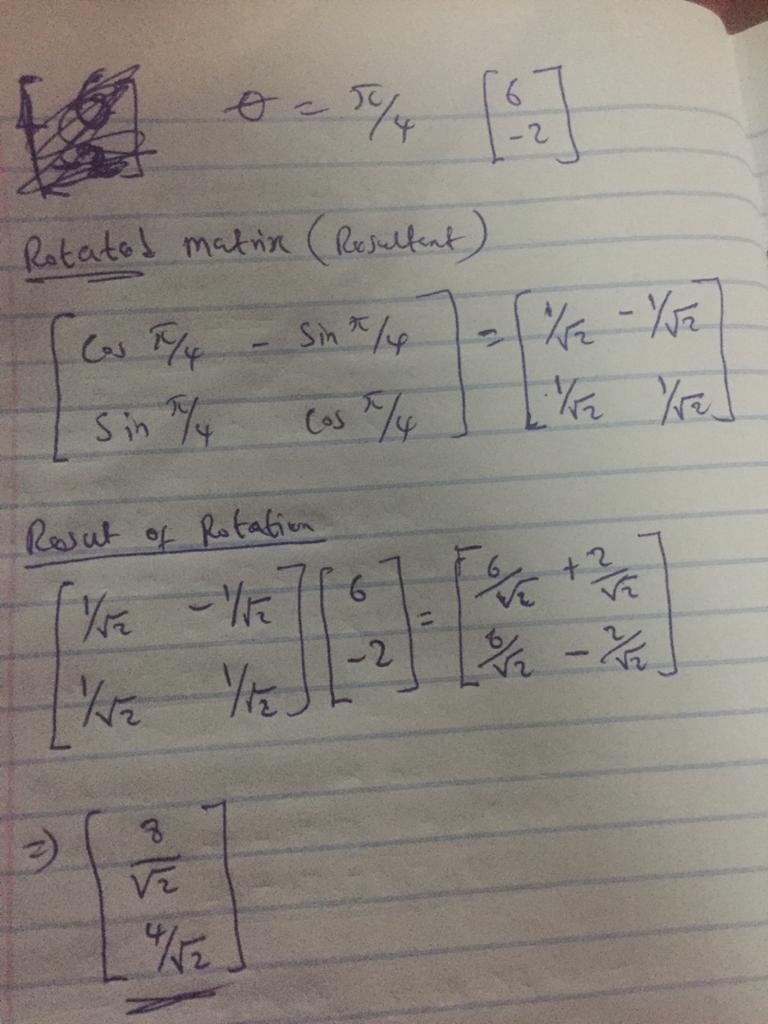 θ = π/4 [6 -2]
Rotated matrix (Resultent)
[cos π/4 - sin π/4] = [1/√2 - 1/√2]
[sin π/4 cos π/4] [1/√2 1/√2]
Resut of Rotation
[1/√2 -1/√2] [6] = [6/√2 + 2/√2]
[1/√2 1/√2] [-2] [6/√2 - 2/√2]
⇒ [8/√2]
[4/√2]